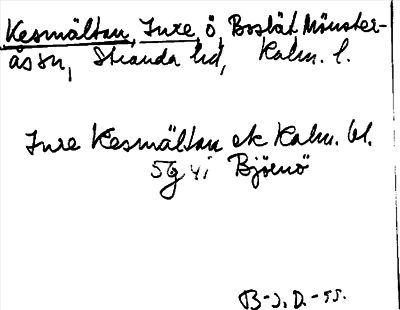 Kesmältan, Inre, ö, Bosbåt Mönster-
ås sn, Stranda hd, Kalm. l.
Inre Kesmältan ek Kalm. bl.
5g vi Björnö
B-J. D. -55.